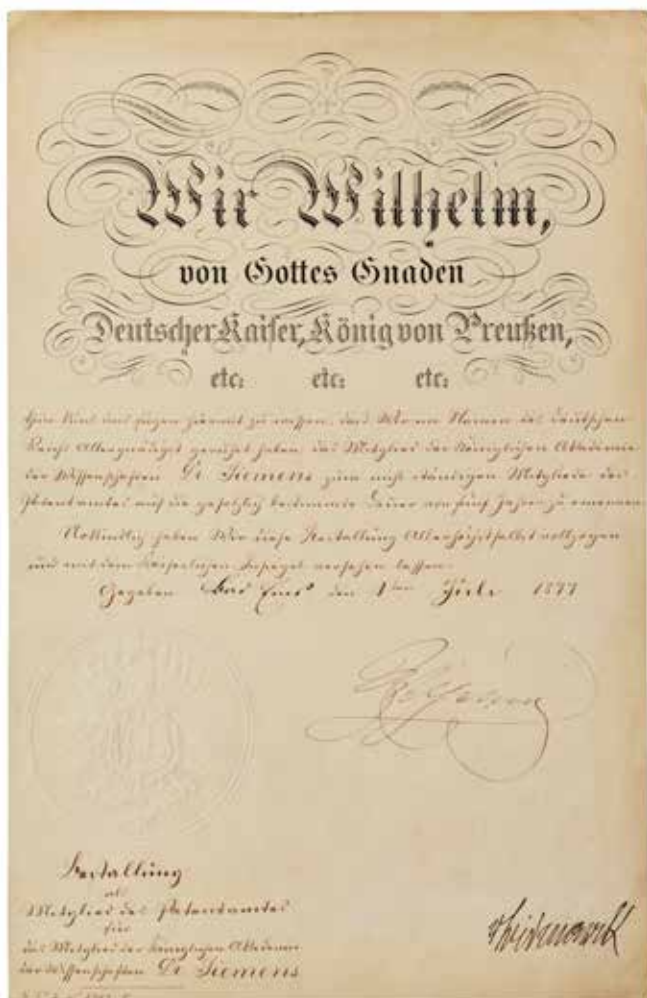 Wir Wilhelm,
von Gottes Gnaden
Deutscher Kaiser, König von Preußen,
etc: etc: etc:
thun kund und fügen hiermit zu wissen, daß Wir im Namen des Deutschen
Reichs Allergnädigst geruht haben, das Mitglied der Königlichen Akademie
der Wissenschaften Dr. Siemens zum nicht ständigen Mitgliede des
Patentamtes auf die gesetzlich bestimmte Dauer von fünf Jahren zu ernennen.
Urkundlich haben Wir diese Bestallung Allerhöchstselbst vollzogen
und mit dem Kaiserlichen Insiegel versehen lassen.
Gegeben Bad Ems den 1ten Juli 1877
Wilhelm
Bestallung
als
Mitglied des Patentamtes
für
das Mitglied der Königlichen Akademie
der Wissenschaften Dr. Siemens
v Bismarck